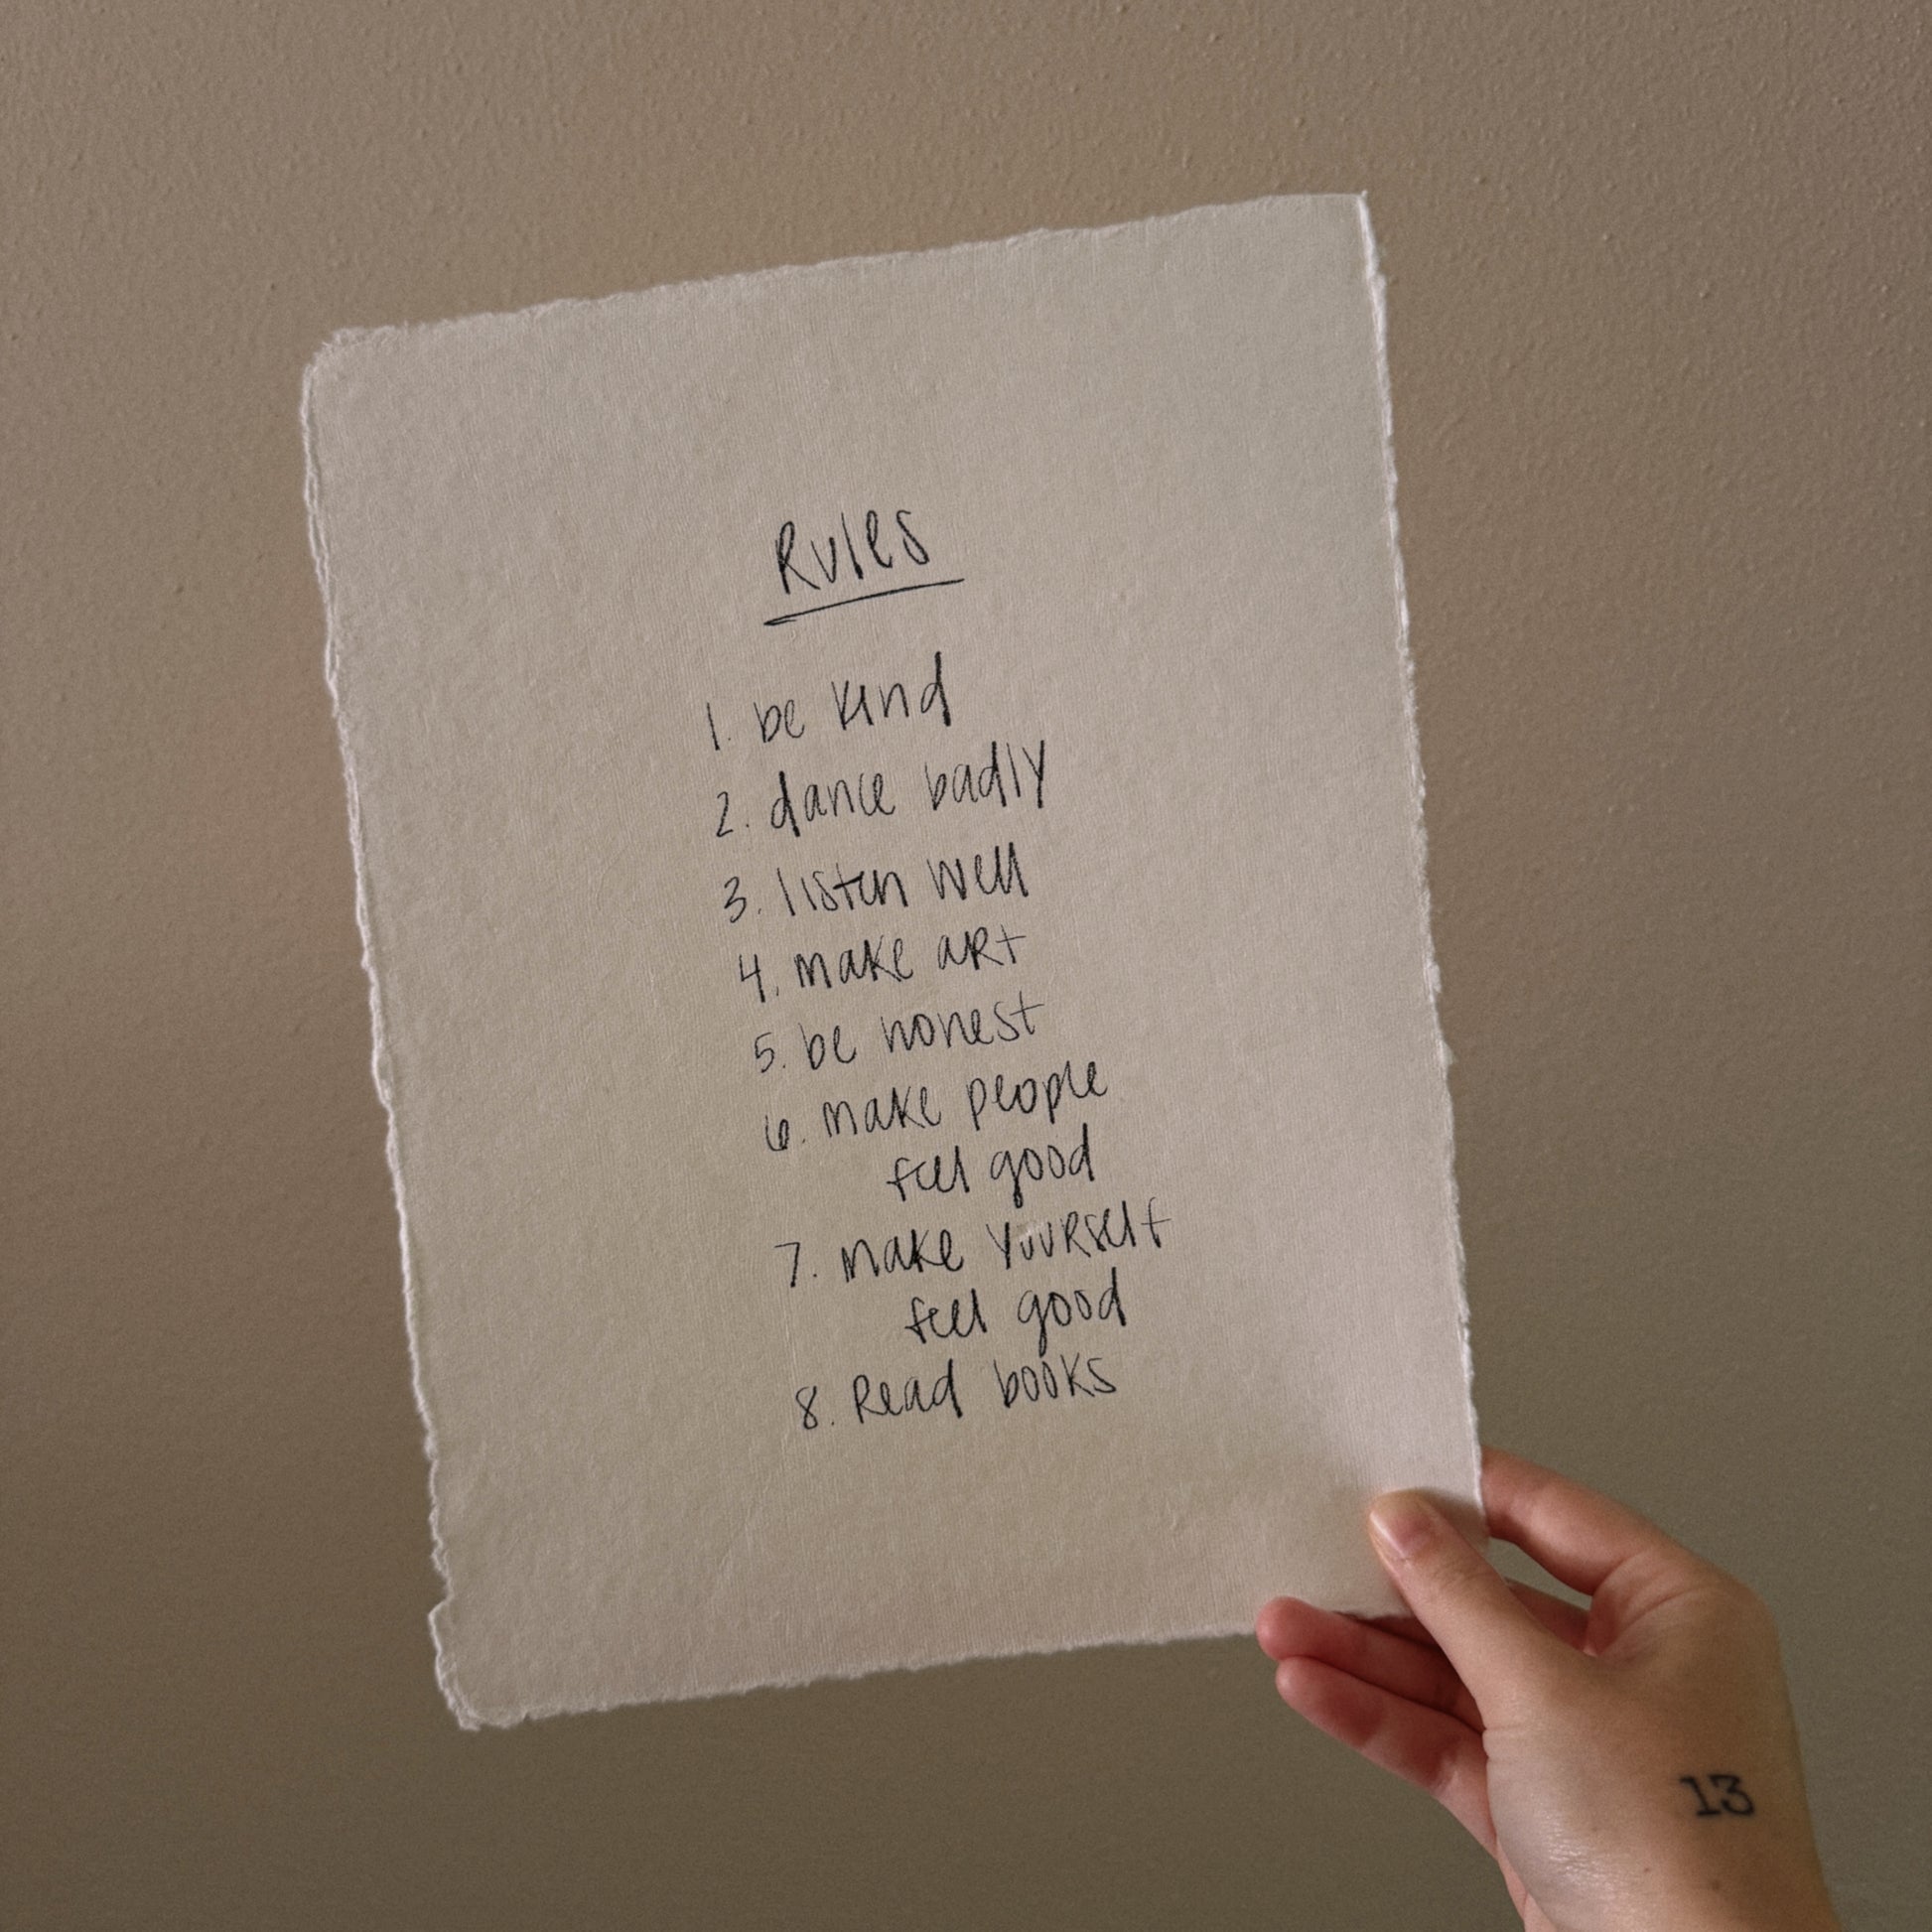 Rules
1. be kind
2. dance badly
3. listen well
4. make art
5. be honest
6. make people
feel good
7. make yourself
feel good
8. Read books
13